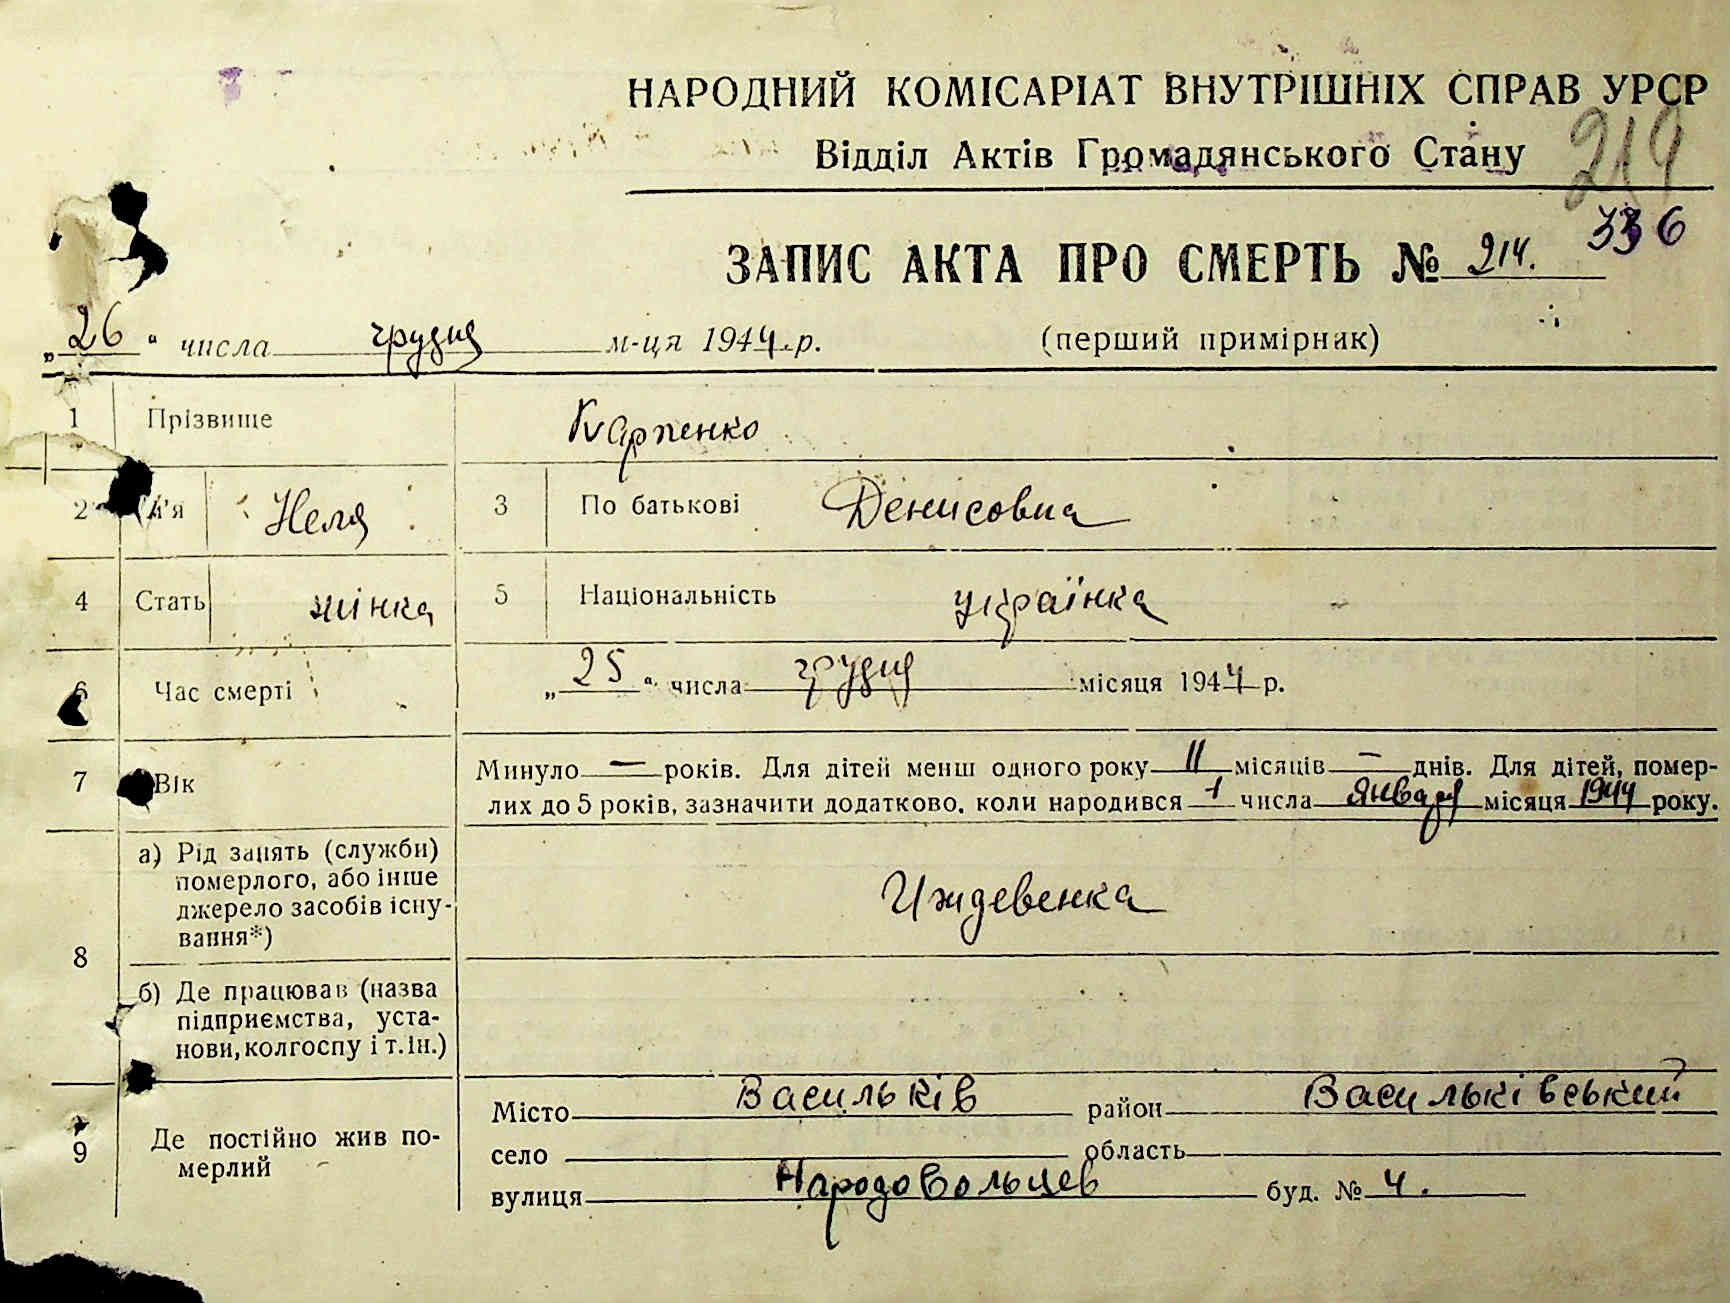 НАРОДНИЙ КОМІСАРІАТ ВНУТРІШНІХ СПРАВ УРСР
Відділ Актів Громадянського Стану
214
336
ЗАПИС АКТА ПРО СМЕРТЬ № 214.
„26“ числа грудня м-ця 1944 р. (перший примірник)
1 Прізвище Карпенко
2 м'я Неля 3 По батькові Денисовна
4 Стать жінка 5 Національність українка
6 Час смерті „25“ числа грудня місяця 1944 р.
7 Вік Минуло — років. Для дітей менш одного року 11 місяців — днів. Для дітей, помер-
лих до 5 років, зазначити додатково, коли народився 1 числа января місяця 1944 року.
8 а) Рід занять (служби)
померлого, або інше
джерело засобів існу-
вання*)
Иждевенка
б) Де працював (назва
підприємства, уста-
нови, колгоспу і т.ін.)
9 Де постійно жив по-
мерлий
Місто Васильків район Васильківський
село область
вулиця Народовольцев буд. № 4.